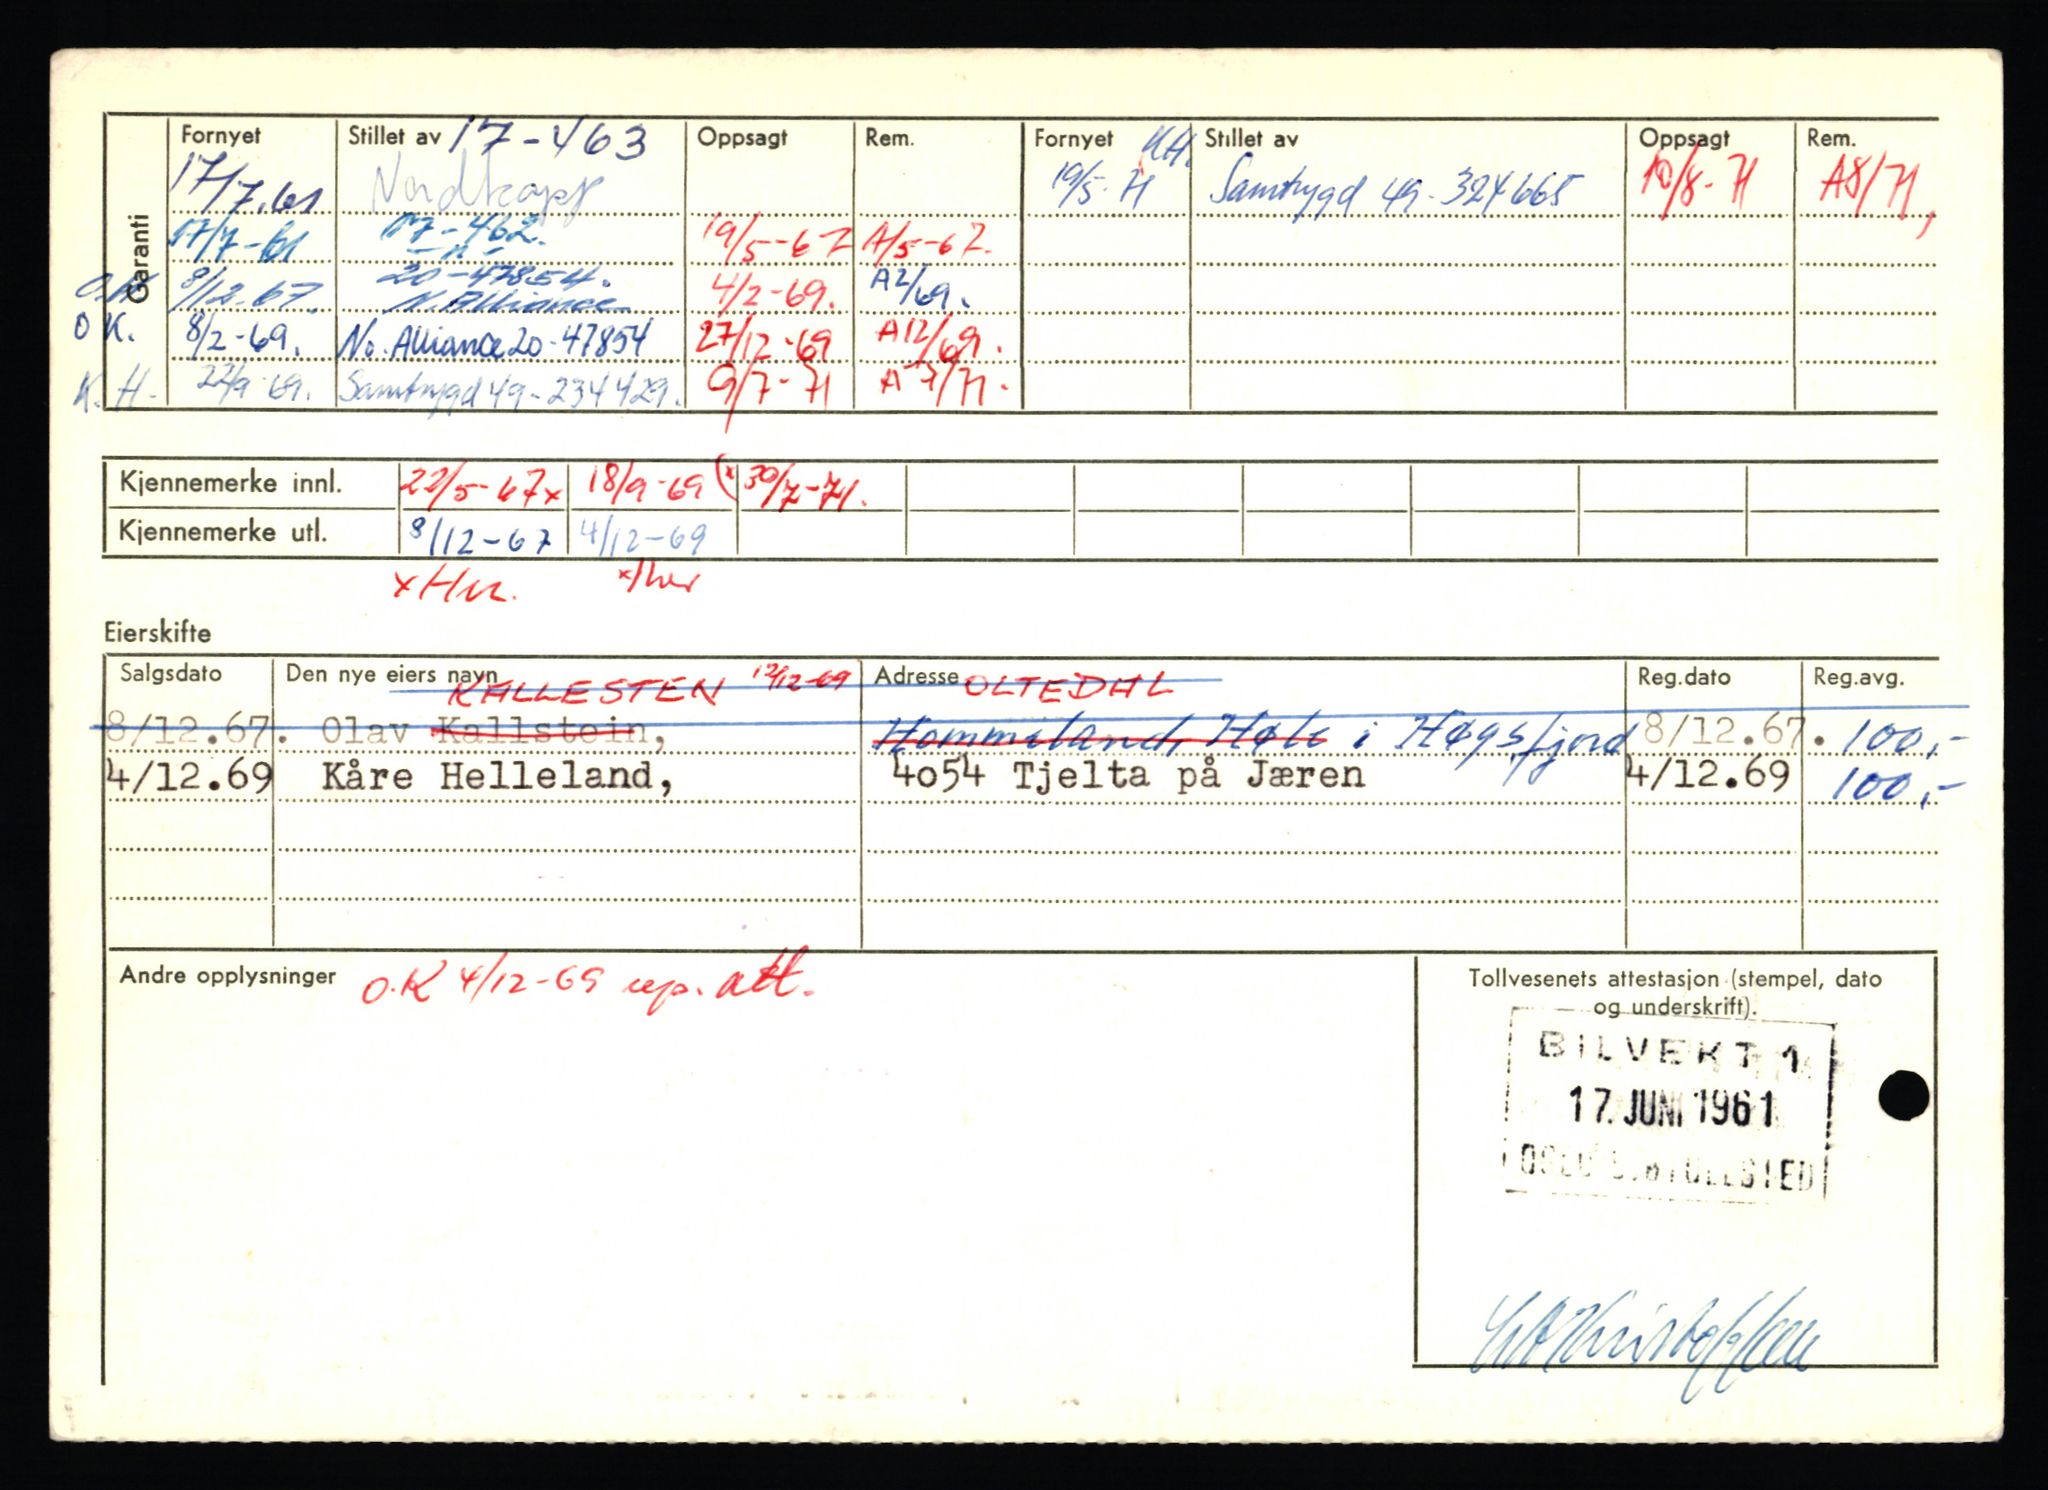 Garanti
Fornyet Stillet av 17-463 Oppsagt Rem. Fornyet KH. Stillet av Oppsagt Rem.
17/7.61 Nordkapp 19/5-71 Samtrygd 49-324665 10/8-71 A8/71,
17/7-61 17-462. 19/5-67 A/5-67.
8/12-67. 20-47854. N.Alliance 4/2-69. A2/69.
O K. 8/2-69. No.Alliance 20-47854 27/12-69 A12/69.
K. H. 22/9-69. Samtrygd 49-234429. 9/7-71 A 7/71.
Kjennemerke innl. 22/5-67x 18/9-69 (x 30/7-71.
Kjennemerke utl. 8/12-67 4/12-69
Eierskifte
Salgsdato Den nye eiers navn Adresse Reg.dato Reg.avg.
KALLESTEN 12/12-69 OLTEDAL
8/12.67. Olav Kallstein, Hommeland, Høle i Høgsfjord 8/12.67. 100,-
4/12.69 Kåre Helleland, 4o54 Tjelta på Jæren 4/12.69 100,-
Andre opplysninger O.K 4/12-69 att.
Tollvesenets attestasjon (stempel, dato
og underskrift).
BILVEKT 1
17. JUNI 1961